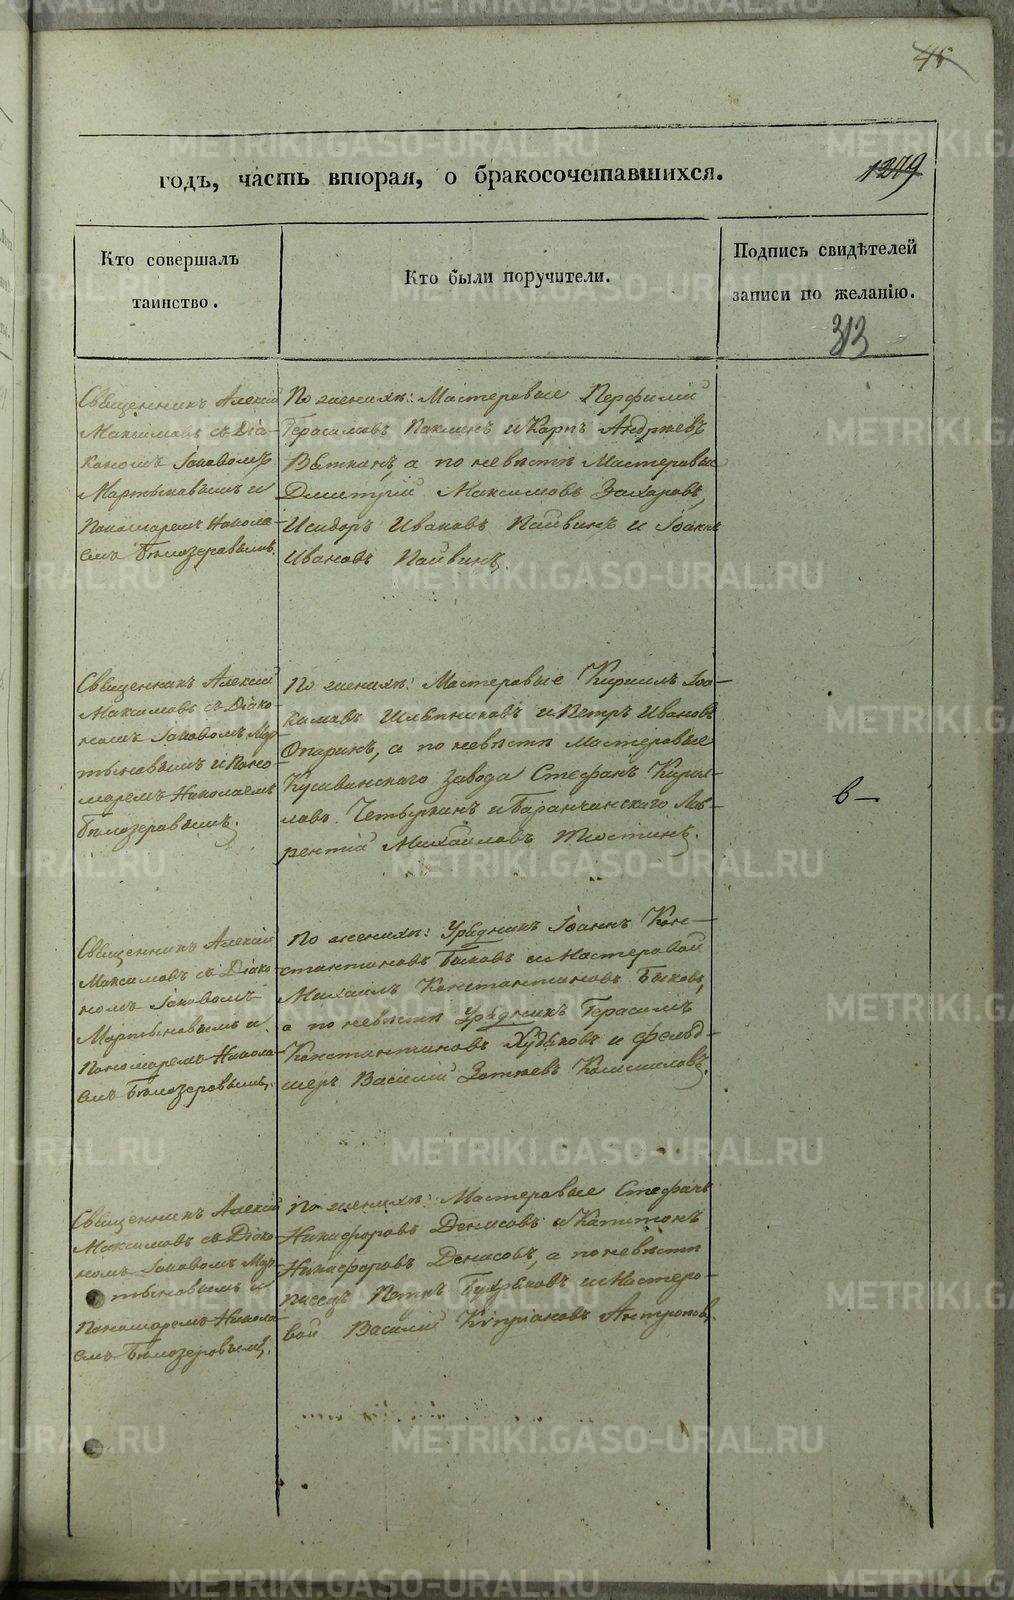 46
годъ, часть вторая, о бракосочетавшихся.
1279
Кто совершалъ
таинство.
Кто были поручители.
Подпись свидѣтелей
записи по желанію.
313
Священникъ Алексій
Максимовъ съ Діа-
кономъ Іаковомъ
Мартыновымъ и
Пономаремъ Никола-
емъ Бѣлозеровымъ.
По женихѣ: Мастеровые Перфилій
Герасимовъ Паклинъ и Карпъ Андреевъ
Вяткинъ, а по невѣстѣ Мастеровые
Дмитрій Максимовъ Захаровъ,
Исидоръ Ивановъ Пайвинъ и Іоаннъ
Ивановъ Пайвинъ.
Священникъ Алексій
Максимовъ съ Діако-
номъ Іаковомъ Мар-
тыновымъ и Поно-
маремъ Николаемъ
Бѣлозеровымъ.
По женихѣ: Мастеровые Кирилъ Іоа-
кимовъ и Петръ Ивановъ
Опаринъ, а по невѣстѣ Мастеровые
Кушвинскаго завода Стефанъ Кирил-
ловъ Четыркинъ и Баранчинскаго Лав-
рентій Михайловъ
6 —
Священникъ Алексій
Максимовъ съ Діако-
номъ Іаковомъ
Мартыновымъ и
Пономаремъ Никола-
емъ Бѣлозеровымъ.
По женихѣ: Урядникъ Іоаннъ Кон-
стантиновъ Быковъ и Мастеровой
Михаилъ Константиновъ Быковъ,
а по невѣстѣ Урядникъ Герасимъ
Константиновъ Худяковъ и Фельд-
шеръ Василій Зотѣевъ
Священникъ Алексій
Максимовъ съ Діако-
номъ Іаковомъ Мар-
тыновымъ и
Пономаремъ Никола-
емъ Бѣлозеровымъ.
По женихѣ: Мастеровые Стефанъ
Никифоровъ Денисовъ и Капитонъ
Никифоровъ Денисовъ, а по невѣстѣ
писецъ Петръ и Мастеро-
вой Василій Кипріановъ Антроповъ.
METRIKI.GASO-URAL.RU